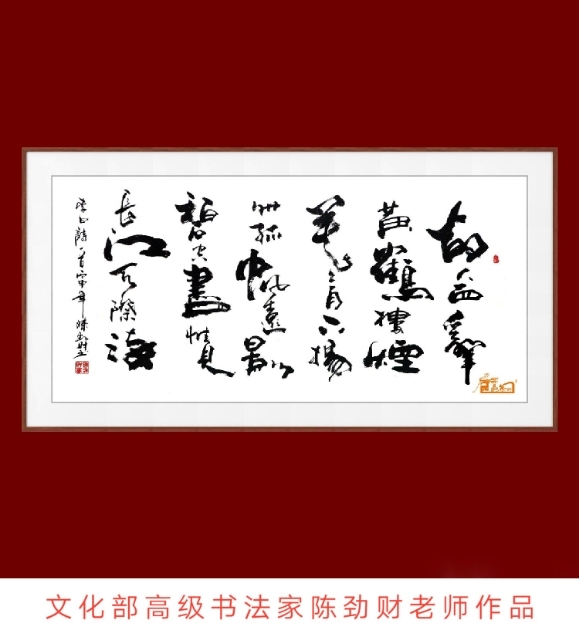 故人西辭
黄鶴樓煙
花三月下揚
州孤帆遠影
碧空盡惟見
長江天際流
李白詩一首
文化部高级书法家陈劲财老师作品